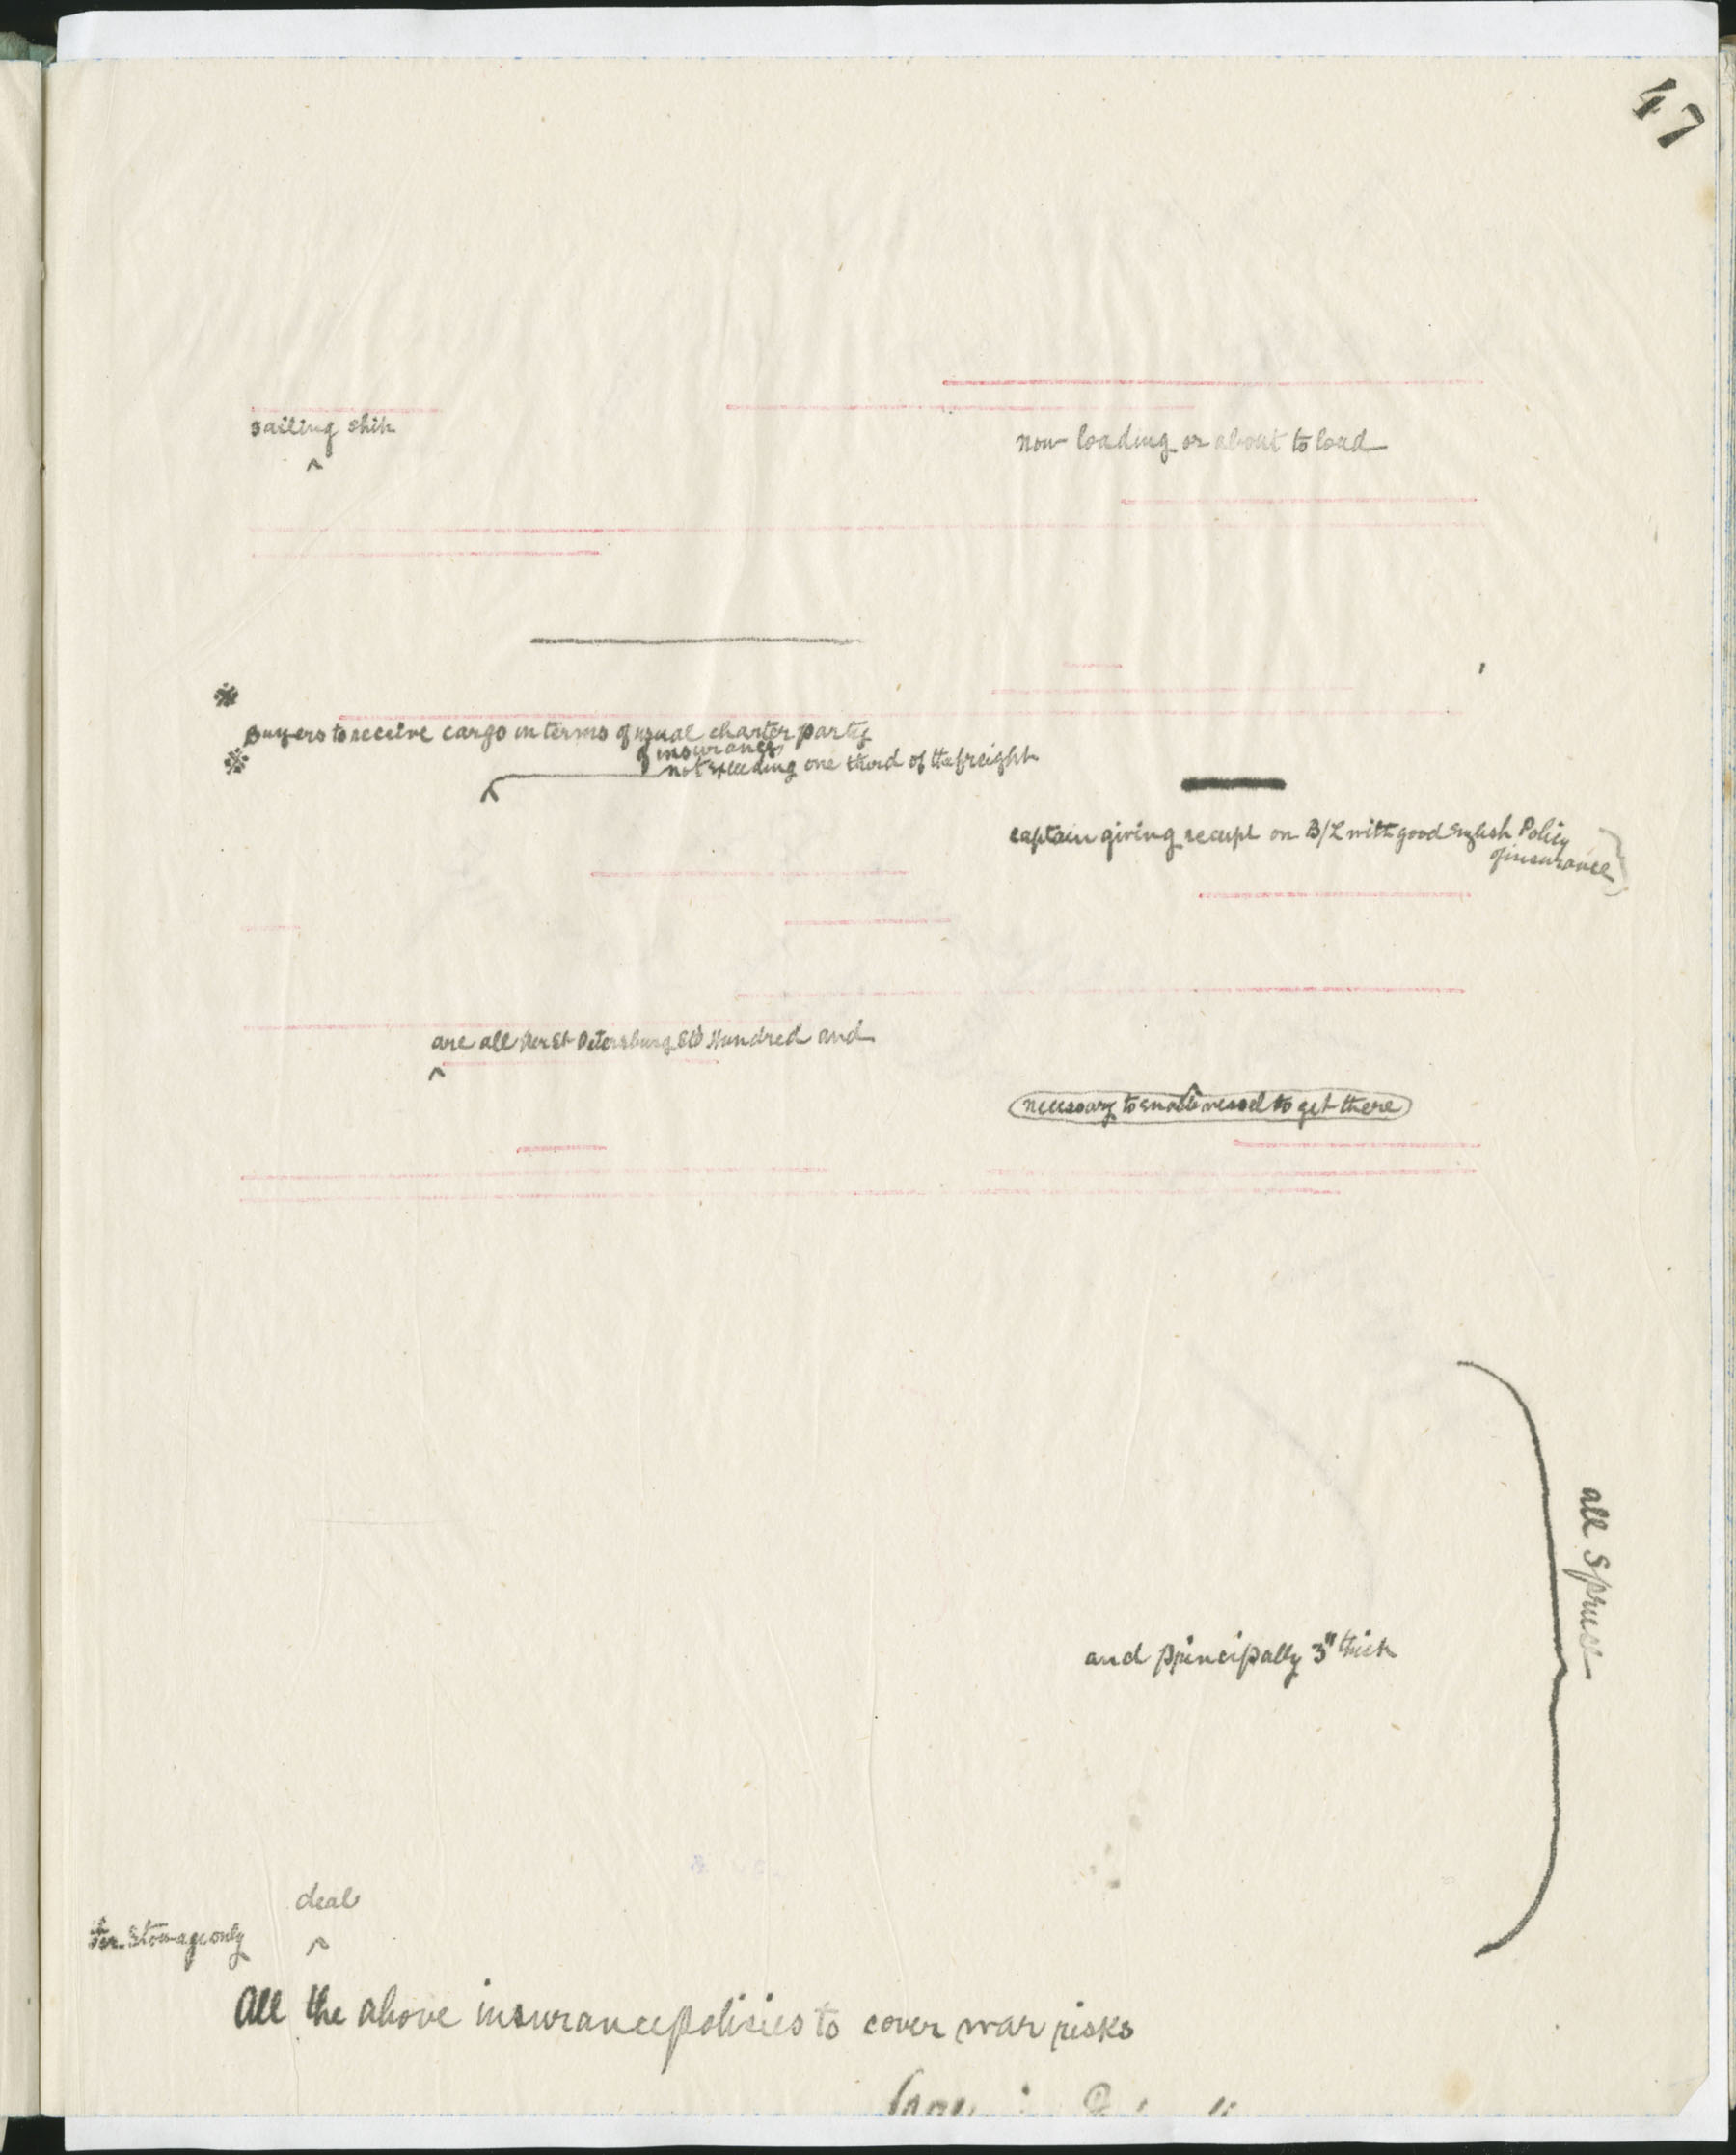 47
sailing ship
now loading or about to load
Buyers to receive cargo in terms of usual charter party
of insurance
not exceeding one third of the freight
captain giving receipt on B/L with good English Policy
of insurance
are all per St Petersburg Std Hundred and
necessary to enable vessel to get there
all Spruce
and principally 3" thick
deal
for Stowage only
All the above insurance polisies to cover war risks